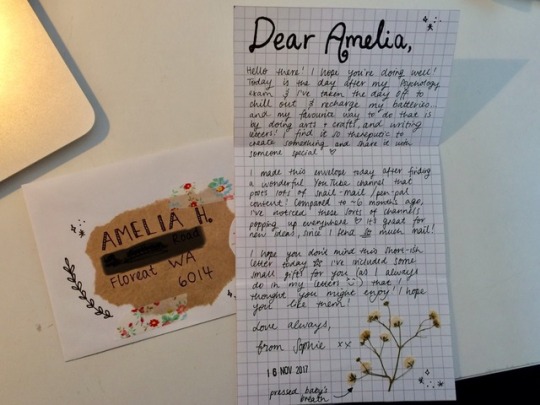 Dear Amelia,
Hello there! I hope you're doing well!
Today is the day after my Psychology
exam & I've taken the day off to
chill out & recharge my batteries...
and my favourite way to do that is
by doing arts + crafts, and writing
letters! I find it so therapeutic to
create something and share it with
someone special! ♡
I made this envelope today after finding
a wonderful YouTube channel that
posts lots of snail-mail / pen-pal
content! Compared to ~6 months ago,
I've noticed these sorts of channels
popping up everywhere ♡ it's great for
new ideas, since I send so much mail!
I hope you don't mind this short-ish
letter today I've included some
small gifts for you (as I always
do in my letters ~) that I
thought you might enjoy! I hope
you like them!
Love always,
from Sophie xx
16 NOV 2017
pressed baby's
breath
AMELIA H.
Road
Floreat WA
6014